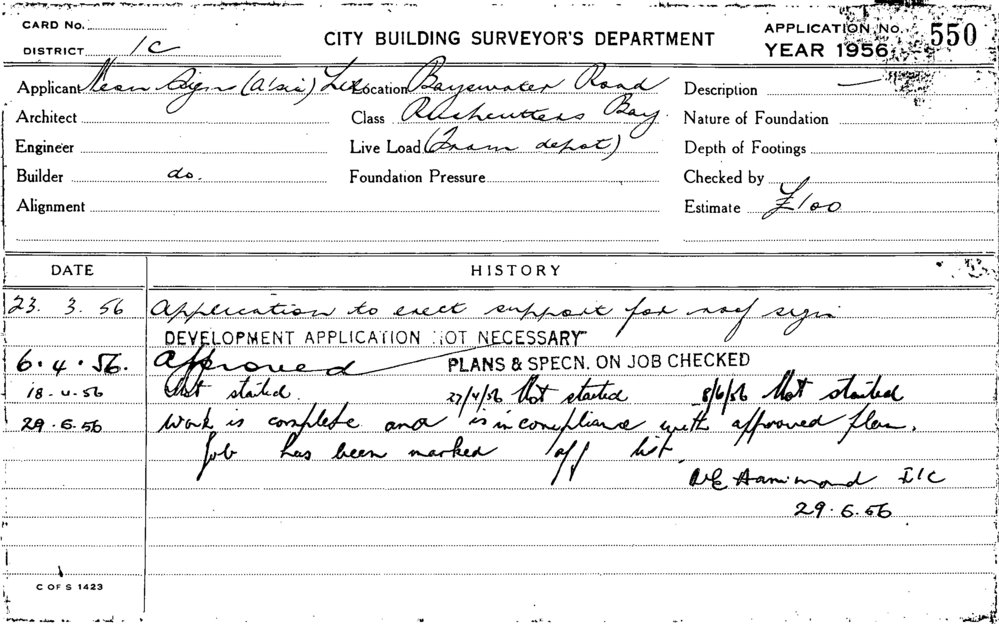 CARD No.
DISTRICT 1C
CITY BUILDING SURVEYOR'S DEPARTMENT
APPLICATION No. 550
YEAR 1956
Applicant Neon Signs (A'sia) Ltd Location Bayswater Road Description —
Architect Class Rushcutters Bay Nature of Foundation
Engineer Live Load (Tram depot) Depth of Footings
Builder do. Foundation Pressure Checked by
Alignment Estimate £100
DATE HISTORY
23. 3. 56 Application to erect support for roof sign
DEVELOPMENT APPLICATION NOT NECESSARY
6.4.56. Approved PLANS & SPECN. ON JOB CHECKED
18.4.56 Not started. 27/4/56 Not started 8/6/56 Not started
29.6.56 Work is complete and is in compliance with approved plan.
Job has been marked off list.
Hammond I/C
29.6.56
C OF S 1423